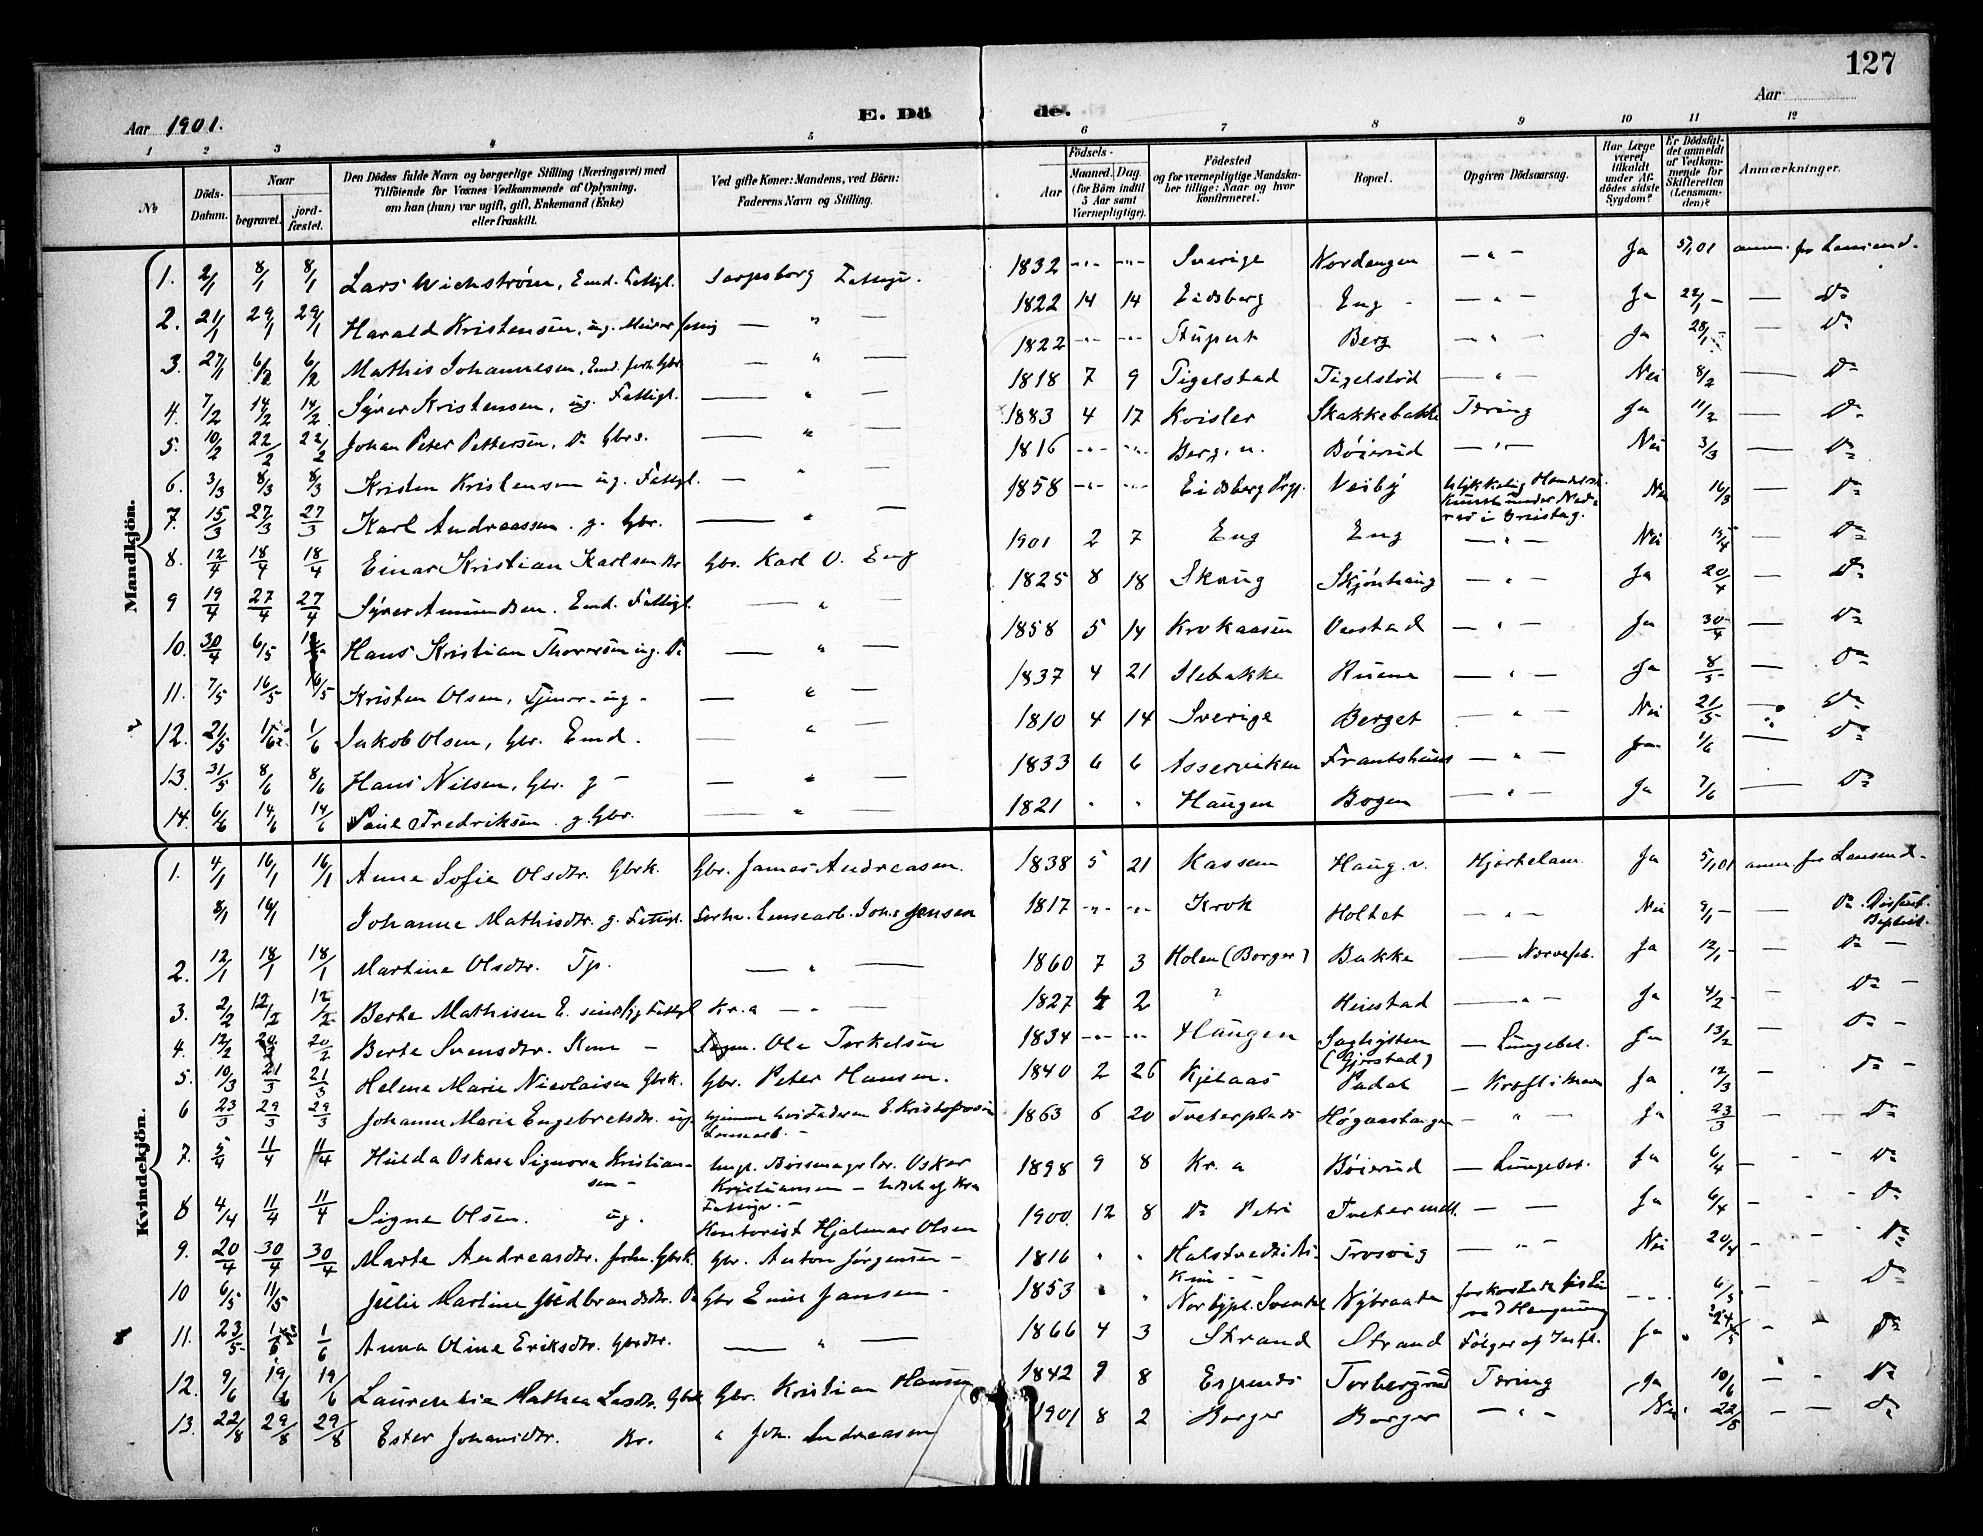 127
Aar 1901. E. Dö de. Aar
1 2 3 4 5 6 7 8 9 10 11 12
№ Döds-Datum. Naar begravet. jord-fæstet. Den Dödes fulde Navn og borgerlige Stilling (Næringsvei) med Tilföiende for Voxnes Vedkommende af Oplysning, om han (hun) var ugift, gift, Enkemand (Enke) eller fraskilt. Ved gifte Koner: Mandens, ved Börn: Faderens Navn og Stilling. Födsels- Aar Maaned. Dag. (for Börn indtil 5 Aar samt Værnepligtige). Födested og for værnepligtige Mandskaber tillige: Naar og hvor konfirmeret. Bopæl. Opgiven Dödsaarsag. Har Læge været tilkaldt under Afdödes sidste Sygdom? Er Dödsfaldet anmeldt af Vedkommende for Skifteretten (Lensmanden)? Anmærkninger.
Mandkjön.
1. 2/1 8/1 8/1 Lars Wichström, Emd. Fattigl. Sarpsborg 1832 Sverige Nordengen — " — Ja 5/1 01 anm. for Lensmd.
2. 21/1 29/1 29/1 Harald Kristensen, ug. — " — 1822 14 14 Eidsberg Eng — " — Ja 22/1 — — Do
3. 27/1 6/2 6/2 Mathis Johannesen, Emd. forh. Gbr. — " — 1822 Berg — " — Ja 28/1 — Do
4. 7/2 14/2 14/2 Syver Kristensen, ug. Fattigl. — " — 1818 7 9 Tigelstad Tigelstad — " — Nei 8/2 — Do
5. 10/2 22/2 22/2 Johan Peter Pettersen, Do Gbrs. — " — 1883 4 17 Kvisler Skakkebakke Tæring Ja 11/2 — Do
6. 3/3 8/3 8/3 Kristen Kristensen ug. Fattigl. — " 1816 Berg, n. Böierud — " — Nei 3/3 — Do
7. 15/3 27/3 27/3 Karl Andreassen. g. Gbr. — " — 1858 Eidsberg Prgj. Næsby Nei 16/3 — Do
8. 12/4 18/4 18/4 Einar Kristian Karlsen Br Gbr. Karl O. Eng 1901 2 7 Eng Eng — " — Nei 15/4 — Do
9 19/4 27/4 27/4 Syver Amundsen. Emd. Fattigl. — " — 1825 8 18 Skaug Skjönhaug — " — Ja 20/4 — Do
10. 30/4 6/5 Hans Kristian Thoresen ug. Do — " — 1858 5 14 Krokaasen Onstad — " — Ja 30/4 — Do
11. 7/5 16/5 16/5 Kristen Olsen, Tjener. ug. — " — 1837 4 21 Ilebakke Ruene — " — Ja 8/5 — Do
12. 21/5 1/6 1/6 Jakob Olsen, Gbr. Emd. — " — 1810 4 14 Sverige Berget — " — Nei 21/5 — Do
13. 31/5 8/6 8/6 Hans Nilsen, Gbr. g — — " — 1833 6 6 Asserviken Frantshuus — " — Ja 1/6 — Do
14. 6/6 14/6 14/6 Paul Fredriksen. g. Gbr. — " — 1821 " " Haugen Bogen — " — Ja 7/6 — Do
Kvindekjön.
1. 4/1 16/1 16/1 Anne Sofie Olsdtr. Gbrk. Gbr. James Andreasen. 1838 5 21 Kassem Haug. v. Hjertelam. Ja 5/1 01 anm. for Lensmd.
8/1 16/1 Johanne Mathisdtr. g. Fattigl. Forhv. Lensearb. Johs Jensen 1817 Krok Holtet — " — Nei 9/1 — — Do. Dissent. Baptist.
2. 12/1 18/1 18/1 Martine Olsdtr. Tp. — " — 1860 7 3 Holen (Borger) Bakke — Nervefeb. Ja 12/1 — — Do —
3. 2/2 12/2 12/2 Berte Mathisen E. sindssyg Fattigl Kr.a — " — 1827 4 2 ? Heiestad — " — Ja 4/2 — — Do —
4. 12/2 20/2 20/2 Berte Svensdtr. Kone — Ole Torkelsen 1834 Haugen (Gjøstad) — Lungebet. Ja 13/2 — Do —
5. 10/3 21/3 21/3 Helene Marie Nicolaisen Gbrk. Gbr. Peter Hansen. 1840 2 26 Kjelaas Padal — Kræft i Maven Ja 12/3 — Do —
6 23/3 29/3 29/3 Johanne Marie Engebretsdtr. ug. hjemme hos Faderen E. Kristofersen Lensearb. — 1863 6 20 Tveterplads Högaashaugen — " — Ja 23/3 — — Do
7. 5/4 11/4 11/4 Hulda Oskara Signora Kristiansen — Oskar Kristiansen 1898 9 8 Kr. a Böierud — Lungebet. Ja 6/4 — Do
8 4/4 11/4 11/4 Signe Olsen. ug. Kontorist Hjalmar Olsen 1900 12 8 Do Petri Tveter mell. — — Ja 6/4 — Do
9. 20/4 30/4 30/4 Marte Andreasdtr. forhv. Gbrk. Gbr. Anton Jörgensen — 1816 " " Trosvig — " — Nei 20/4 — Do
10 6/5 11/5 Julie Martine Gbr Emil Jansen — 1853 " " Nybraaten — " 6/5 — Do
11. 23/5 1/6 1/6 Anna Oline Eriksdtr. Gbrdtr. — " — 1866 4 3 Strand Strand Fölger af Ja 24/5 — Do
12. 9/6 19/6 19/6 Laurentia Mathea Larsdtr. Gbrk Gbr. Kristian Hansen 1842 9 8 Torbergrud Tæring Ja 10/6 — Do
13. 22/8 29/8 29/8 Ester Johansdtr. Br. " Joh. Andreasen 1901 8 2 Borger Borger — " — Nei 22/8 — — Do